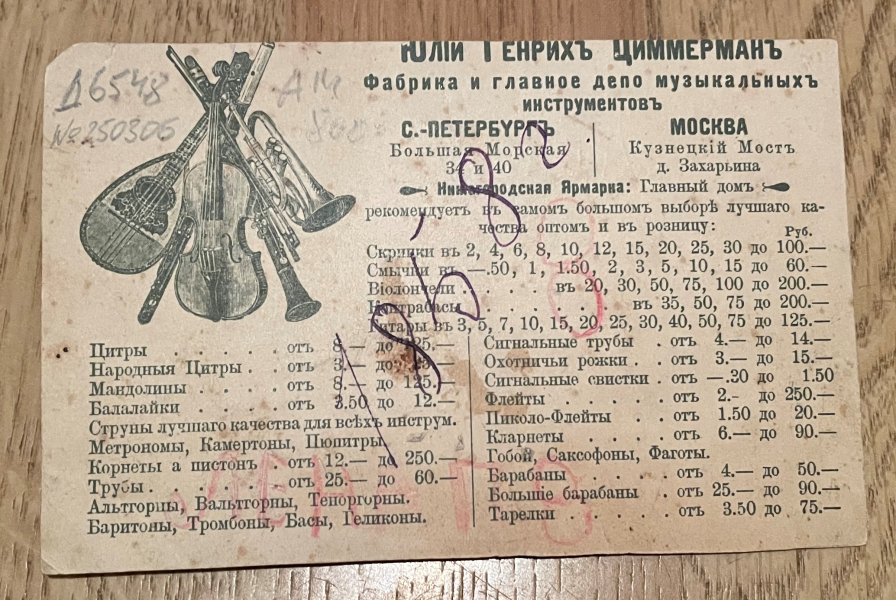 Юлій Генрихъ Циммерманъ
Фабрика и главное депо музыкальныхъ
инструментовъ
С.-ПЕТЕРБУРГЪ
Большая Морская
34 и 40
МОСКВА
Кузнецкій Мостъ
д. Захарьина
Нижегородская Ярмарка: Главный домъ
рекомендуетъ въ самомъ большомъ выборѣ лучшаго ка-
чества оптомъ и въ розницу:
Руб.
Скрипки въ 2, 4, 6, 8, 10, 12, 15, 20, 25, 30 до 100.—
Смычки въ —.50, 1, 1.50, 2, 3, 5, 10, 15 до 60.—
Віолончели . . . . въ 20, 30, 50, 75, 100 до 200.—
Контрабасы . . . . . въ 35, 50, 75 до 200.—
Гитары въ 3, 5, 7, 10, 15, 20, 25, 30, 40, 50, 75 до 125.—
Цитры . . . . . отъ 8.— до 125.—
Народныя Цитры . . отъ 3.— до
Мандолины . . . . отъ 8.— до 125.—
Балалайки . . . . отъ 3.50 до 12.—
Струны лучшаго качества для всѣхъ инструм.
Метрономы, Камертоны, Пюпитры.
Корнеты а пистонъ . отъ 12.— до 250.—
Трубы . . . . . отъ 25.— до 60.—
Альтгорны, Вальтгорны, Теноргорны.
Баритоны, Тромбоны, Басы, Геликоны.
Сигнальные трубы . отъ 4.— до 14.—
Охотничьи рожки . . отъ 3.— до 15.—
Сигнальные свистки . отъ —.30 до 1.50
Флейты . . . . . отъ 2.- до 250.—
Пиколо-Флейты . . отъ 1.50 до 20.—
Кларнеты . . . . отъ 6.— до 90.—
Гобой, Саксофоны, Фаготы.
Барабаны . . . . отъ 4.— до 50.—
Большіе барабаны . отъ 25.— до 90.—
Тарелки . . . . . отъ 3.50 до 75.—
Д6548
№250306